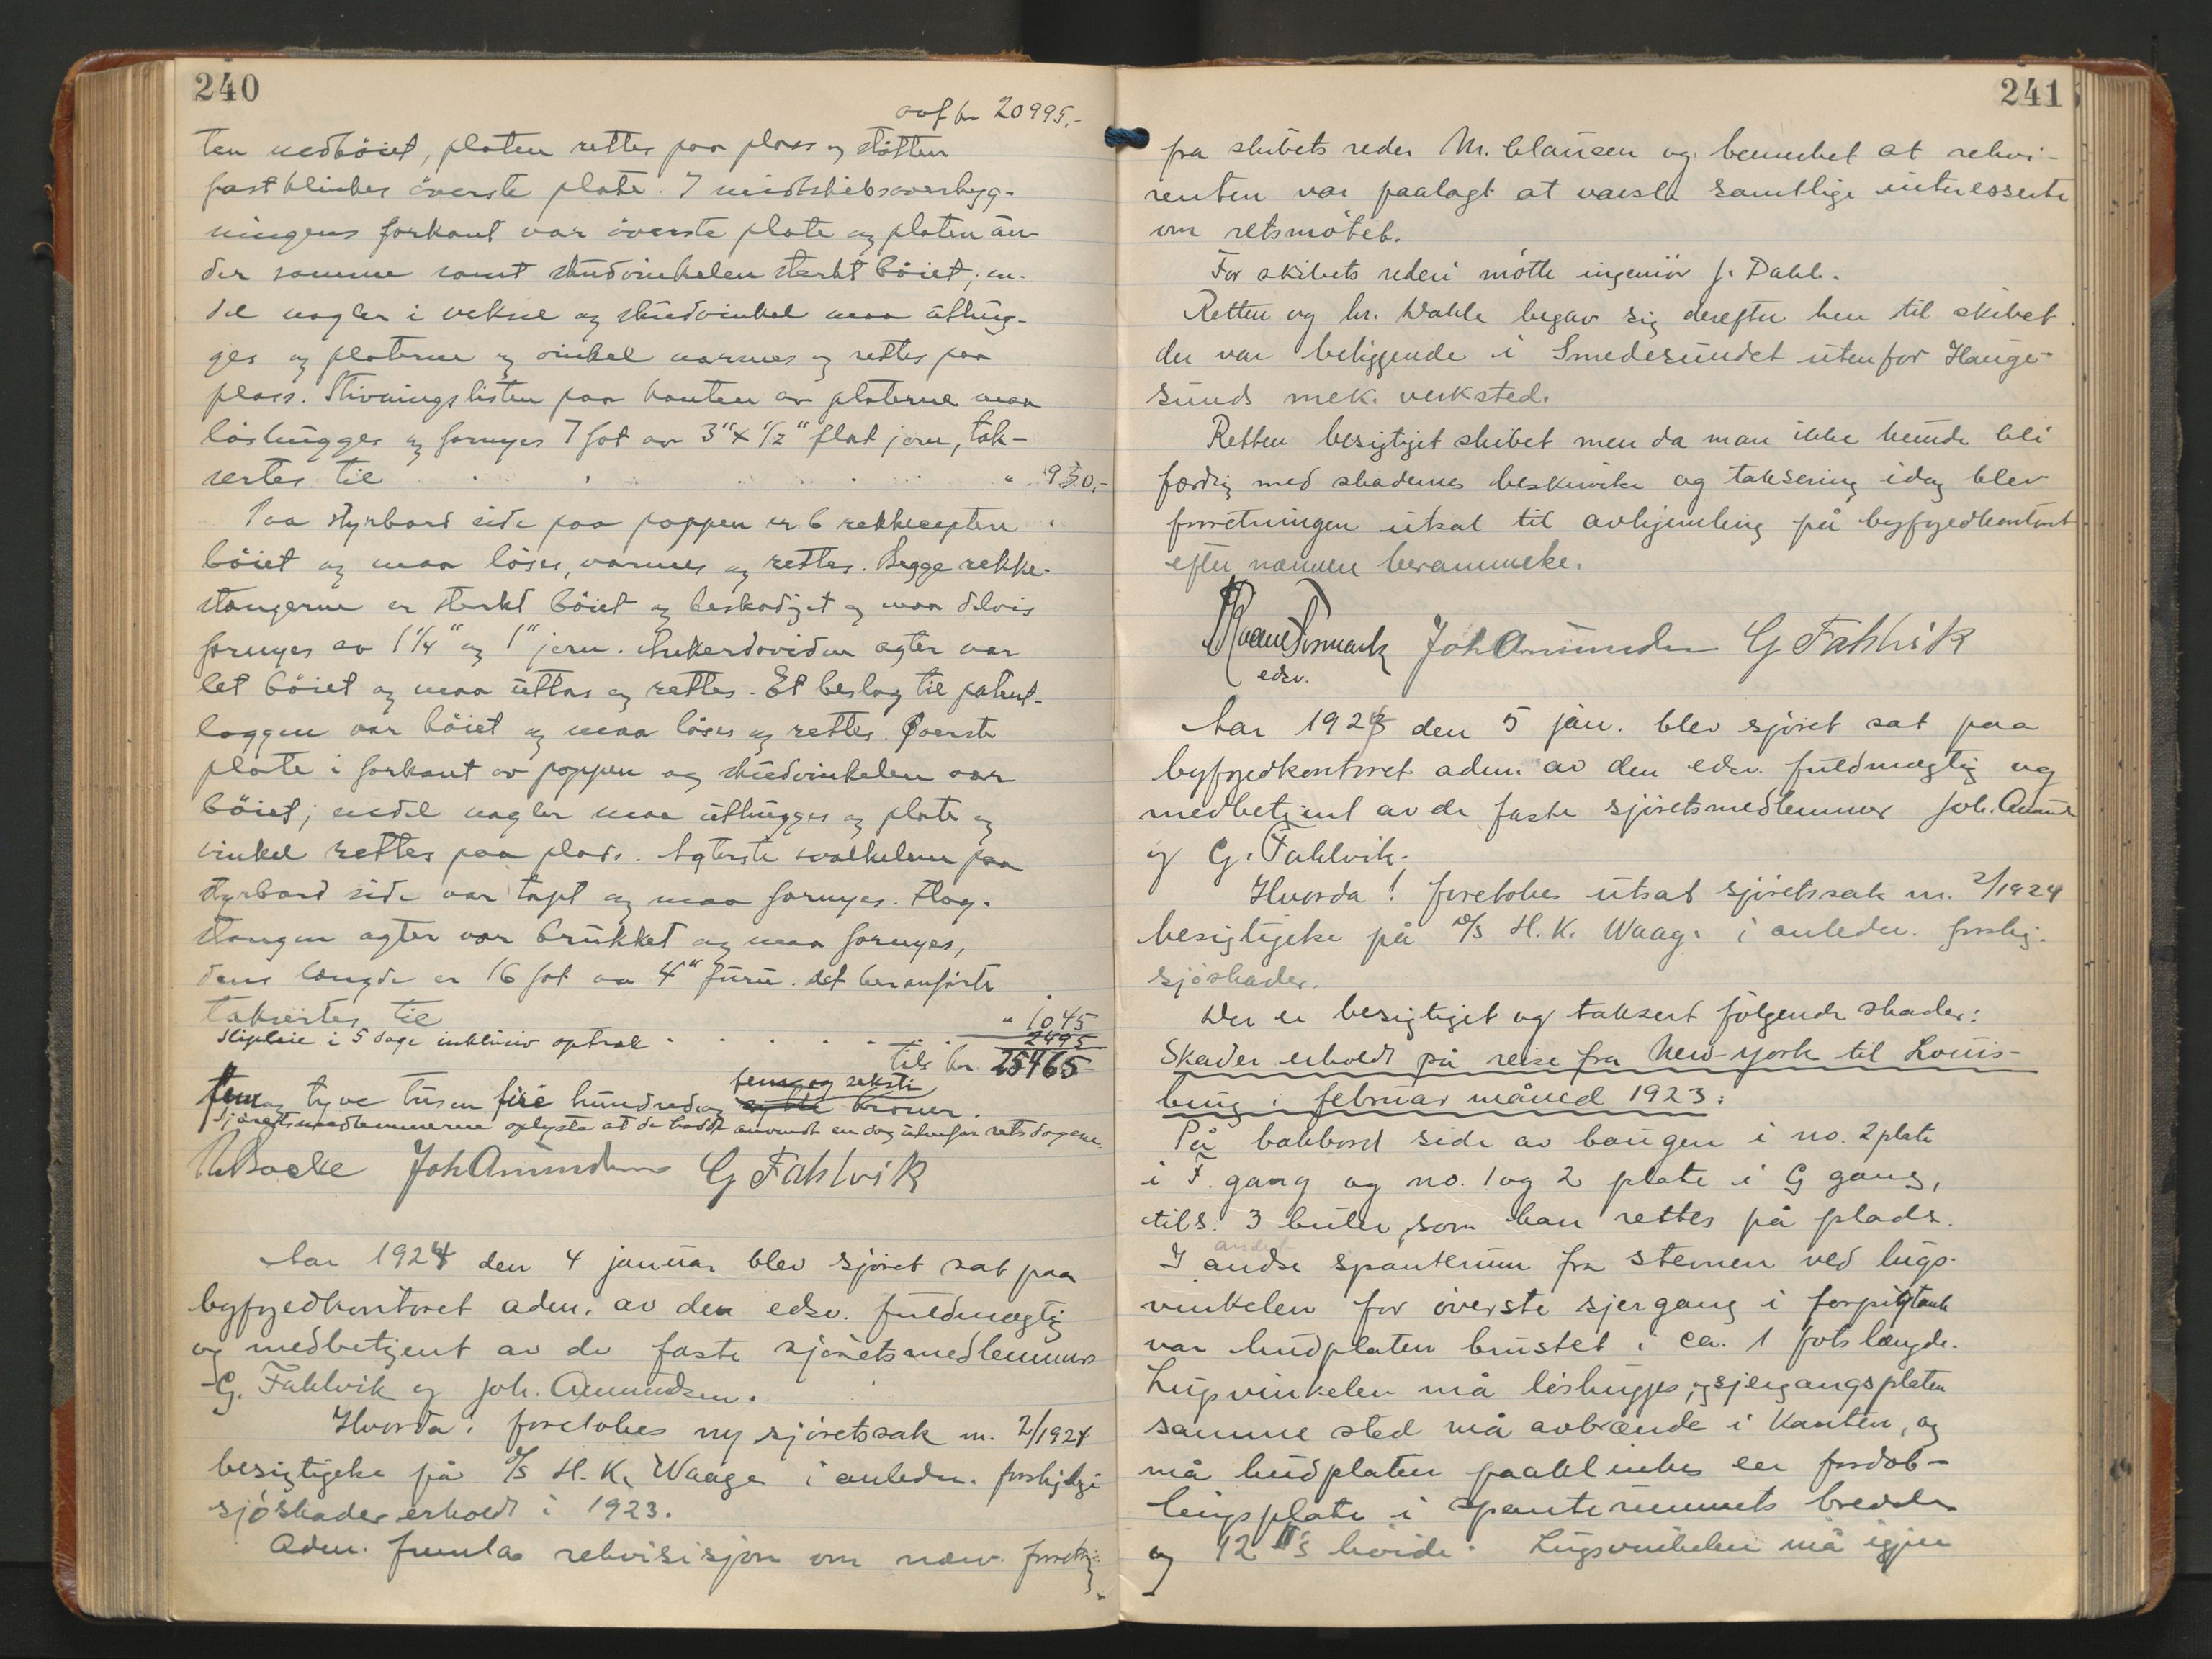 240
ovf kr 20995.-
ten nedböiet, platen rettes paa plass og stötten
fastklinkes överste plate. I midtskibsoverbyg-
ningens forkant var överste plate og platen ün-
der samme samt skudvinkelen sterkt böiet; en-
del nagler i veksel og skudvinkel maa üthüg-
ges og platerne og vinkel varmes og rettes paa
plass. Stivningslisten paa kanten av platerne maa
löshügges og fornyes 7 fot av 3" x 1/2" flat jern, tak-
sertes til . . . . . . " 930.-
Paa styrbord side paa poppen er 6 rekkeceptere
böiet og maa löses, varmes og rettes. Begge rekke-
stangerne er sterkt böiet og beskadiget og maa delvis
fornyes av 1 1/4" og 1" jern. Ankerdaviden agter var
let böiet og maa üttas og rettes. Et beslag til patent-
loggen var böiet og maa löses og rettes. Överste
plate i forkant av poppen og skudvinkelen var
böiet; endel nagler maa üthügges og plate og
vinkel rettes paa plads. Agterste paa
styrbord side var tapt og maa fornyes. Flag-
stangen agter var brükket og maa fornyes,
dens længde er 16 fot av 4" fürü. Det her anförte
taksertes til " 1045
Slipleie i 5 dage inklüsiv optræk . . . . . . 2495
tils kr. 25465-
fem og seksti
fem og tyve tüsen fire hündred og kroner.
Sjöretsmedlemmerne oplyste at de hadde anvendt en dag ütenfor retsdagene.
Joh Amundsen G Fahlvik
Aar 1924 den 4 januar blev sjöret sat paa
byfogedkontoret adm. av den edsv. füldmægtig
og medbetjent av de faste sjöretsmedlemmer
G. Fahlvik og Joh. Amundsen.
Hvorda! foretokes ny sjöretssak nr. 2/1924
besigtigelse på D/S H. K. Waage i anledn. forskjellige
sjöskader erholdt i 1923.
Adm. fremla rekvisisjon om nævn. forretning
241
fra skibets reder M. Clausen og bemerket at rekvi-
renten var paalagt at varsle samtlige interesserte
om retsmötet.
For skibets rederi mötte ingeniör J. Dahl.
Retten og hr. Dahle begav sig derefter hen til skibet
der var beliggende i Smedesundet utenfor Hauge-
sunds mek. verksted.
Retten besigtiget skibet men da man ikke kunde bli
færdig med skadernes beskrivelse og taksering idag blev
forretningen utsat til avhjemling på byfogedkontoret
efter nærmere berammelse.
Joh Amundsen G Fahlvik
edsv.
Aar 1924 den 5 jan. blev sjöret sat paa
byfogedkontoret adm. av den edsv. fuldmægtig og
medbetjent av de faste sjöretsmedlemmer Joh. Amunds
og G. Fahlvik.
Hvorda! foretokes utsat sjöretssak nr. 2/1924
besigtigelse på D/S H. K. Waage i anledn. forskj.
sjöskader.
Der er besigtiget og taksert fölgende skader:
Skader erholdt på reise fra New-York til Louis-
burg i februar måned 1923:
På bakbord side av baugen i no. 2 plate
i F. gang og no. 1 og 2 plate i G gang,
tils. 3 buler, som kan rettes på plads.
andet
I andre spanterum fra stevnen ved lugs-
vinkelen for överste sjergang i forpigtank
var hudplaten brustet i ca. 1 fots længde.
Lugsvinkelen må löshugges, og sjergangsplaten
samme sted må avbrænde i kanten, og
må hudplaten paaklinkes en fordob-
lingsplate i spanterummets bredde
og 12"s höide. Lugsvinkelen må igjen